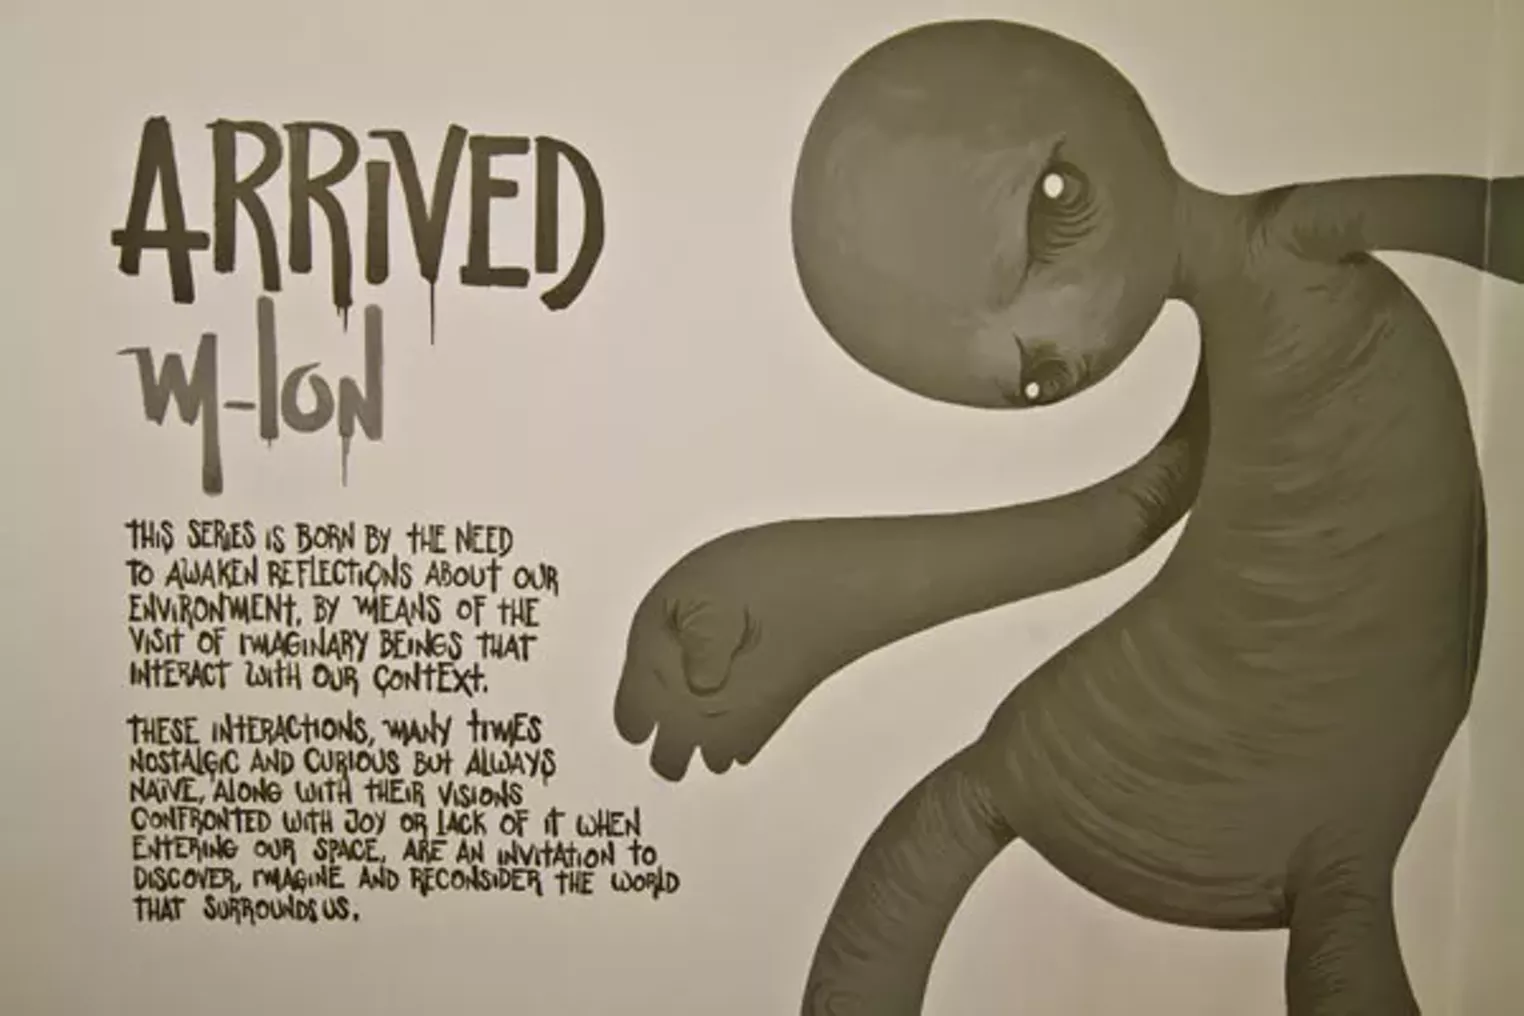 ARRiVED
M-ION
THIS SERIES IS BORN BY THE NEED
TO AWAKEN REFLECTIONS ABOUT OUR
ENVIRONMENT, BY MEANS OF THE
VISIT OF IMAGINARY BEINGS THAT
INTERACT WITH OUR CONTEXT.
THESE INTERACTIONS, MANY TIMES
NOSTALGIC AND CURIOUS BUT ALWAYS
NAÏVE, ALONG WITH THEIR VISIONS
CONFRONTED WITH JOY OR LACK OF IT WHEN
ENTERING OUR SPACE, ARE AN INVITATION TO
DISCOVER, IMAGINE AND RECONSIDER THE WORLD
THAT SURROUNDS US.